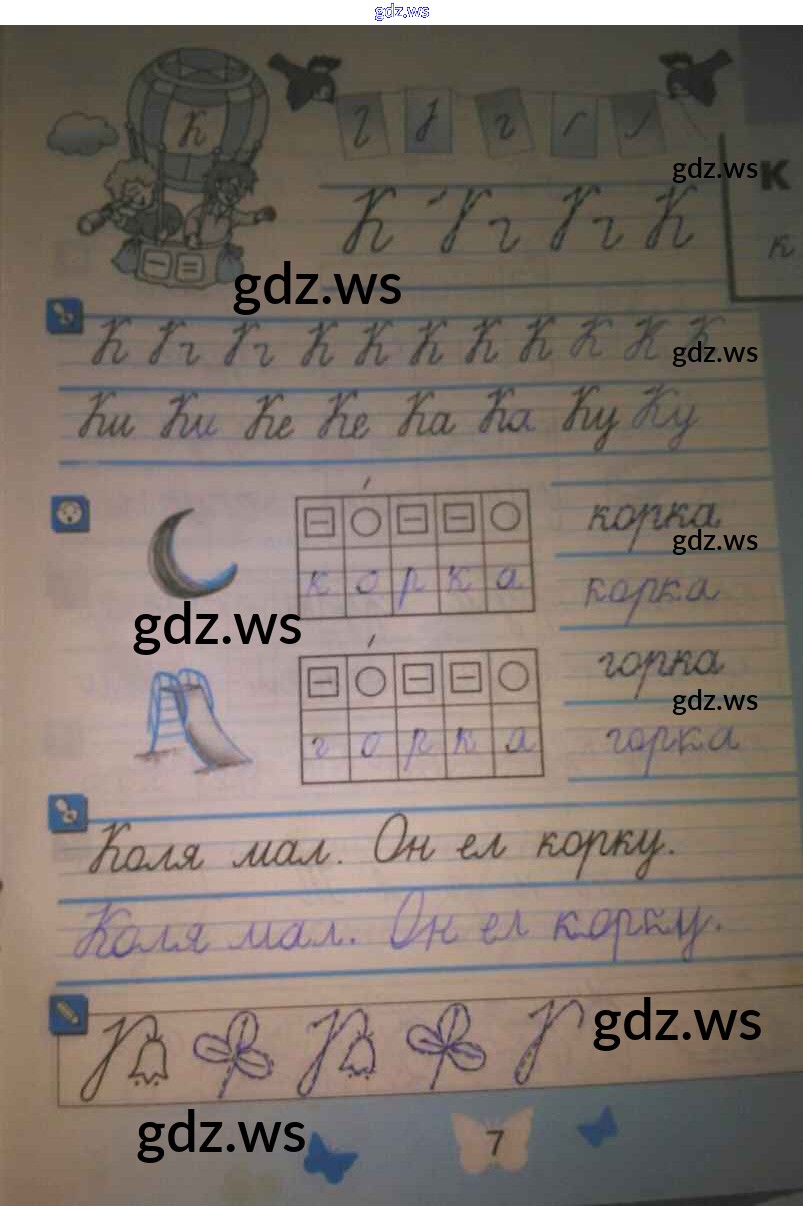 gdz.ws
К
gdz.ws
К
К К К
к
gdz.ws
К К К К К К К К К К К
gdz.ws
Ки Ки Ке Ке Ка Ка Ку Ку
корка
gdz.ws
к о р к а
корка
gdz.ws
горка
gdz.ws
г о р к а
горка
Коля мал. Он ел корку.
Коля мал. Он ел корку.
gdz.ws
gdz.ws
7